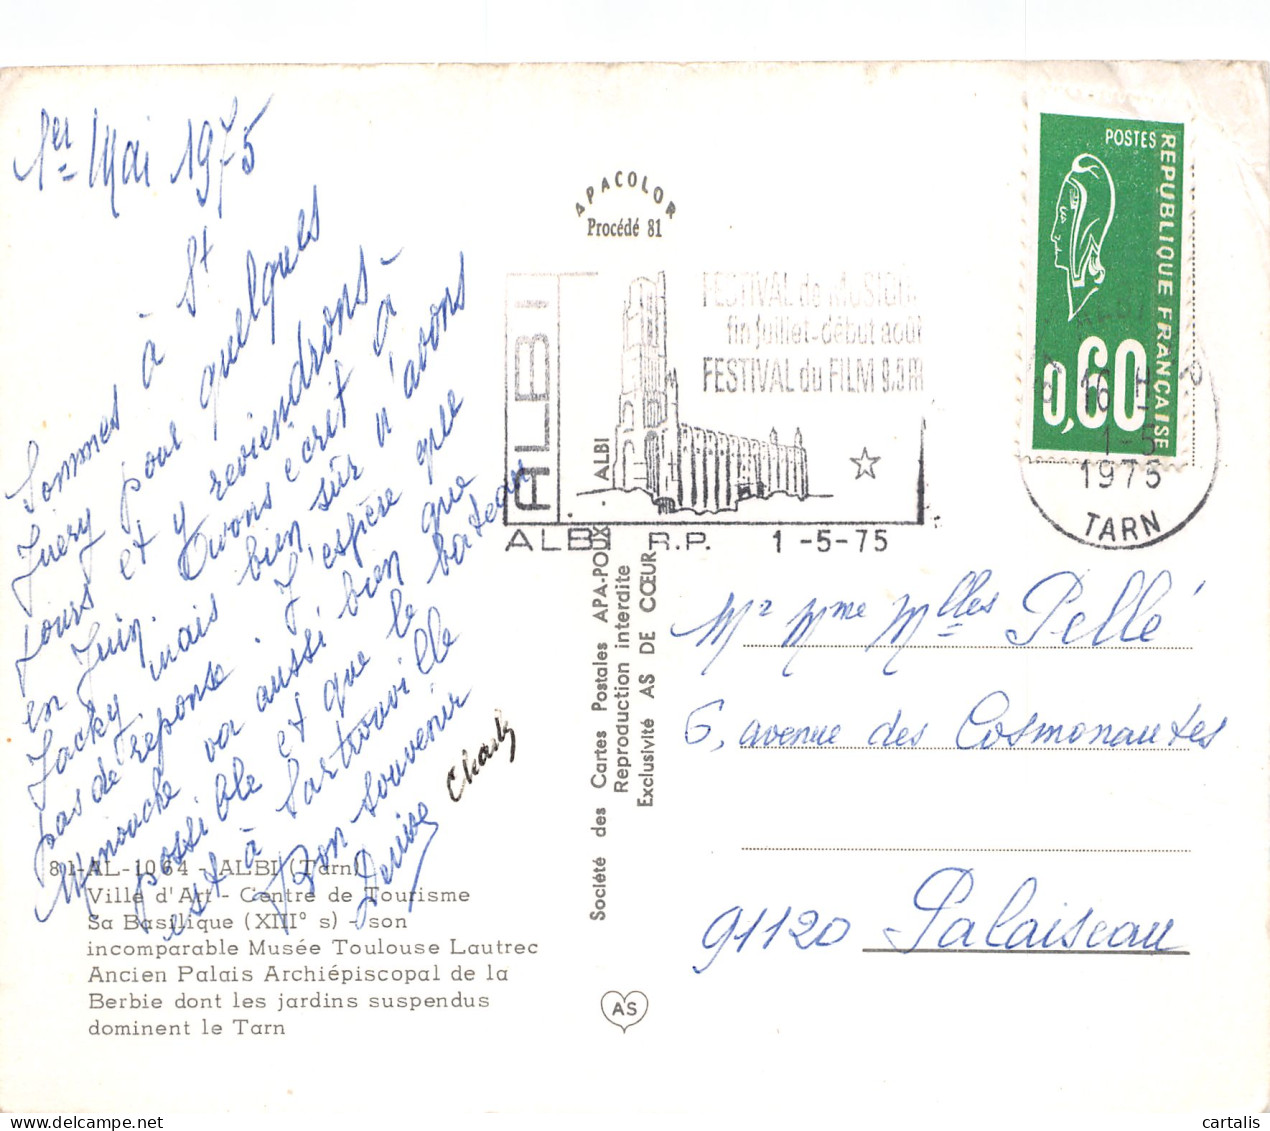 1er Mai 1975
Sommes à St
Juéry pour quelques
jours et y reviendrons
en Juin. Avons écrit à
Jacky mais bien sûr n'avons
pas de réponse. J'espère que
Minouche va aussi bien que
possible et que le bateau
est à Sartrouville
Bon souvenir
Denise Charly
81-AL-1064 - ALBI (Tarn)
Ville d'Art - Centre de Tourisme
Sa Basilique (XIII° s) - son
incomparable Musée Toulouse Lautrec
Ancien Palais Archiépiscopal de la
Berbie dont les jardins suspendus
dominent le Tarn
APACOLOR
Procédé 81
ALBI
ALBI
FESTIVAL de MUSIQUE
fin juillet-début août
FESTIVAL du FILM 9.5
ALBI R.P. 1-5-75
Société des Cartes Postales APA-POUX
Reproduction interdite
Exclusivité AS DE CŒUR
AS
POSTES
REPUBLIQUE FRANCAISE
0,60
16 H
1-5
1975
TARN
Mr Mme Mlles Pellé
6, avenue des Cosmonautes
91120 Palaiseau
cartalis